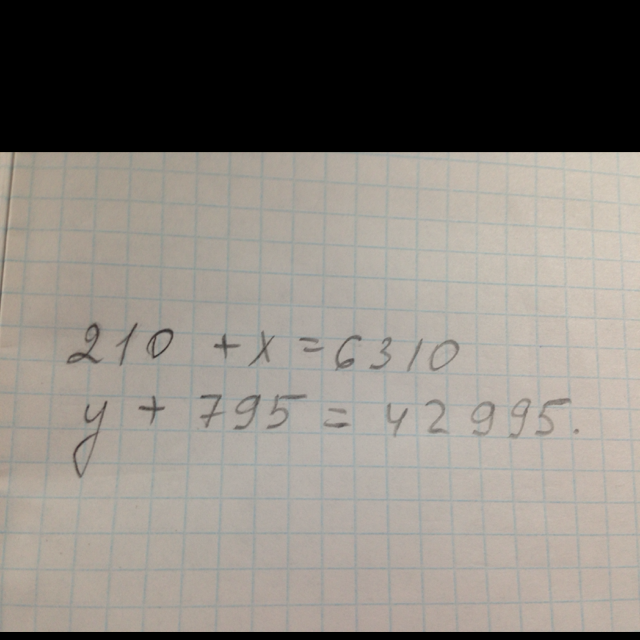 210 + x = 6310
y + 795 = 42995.